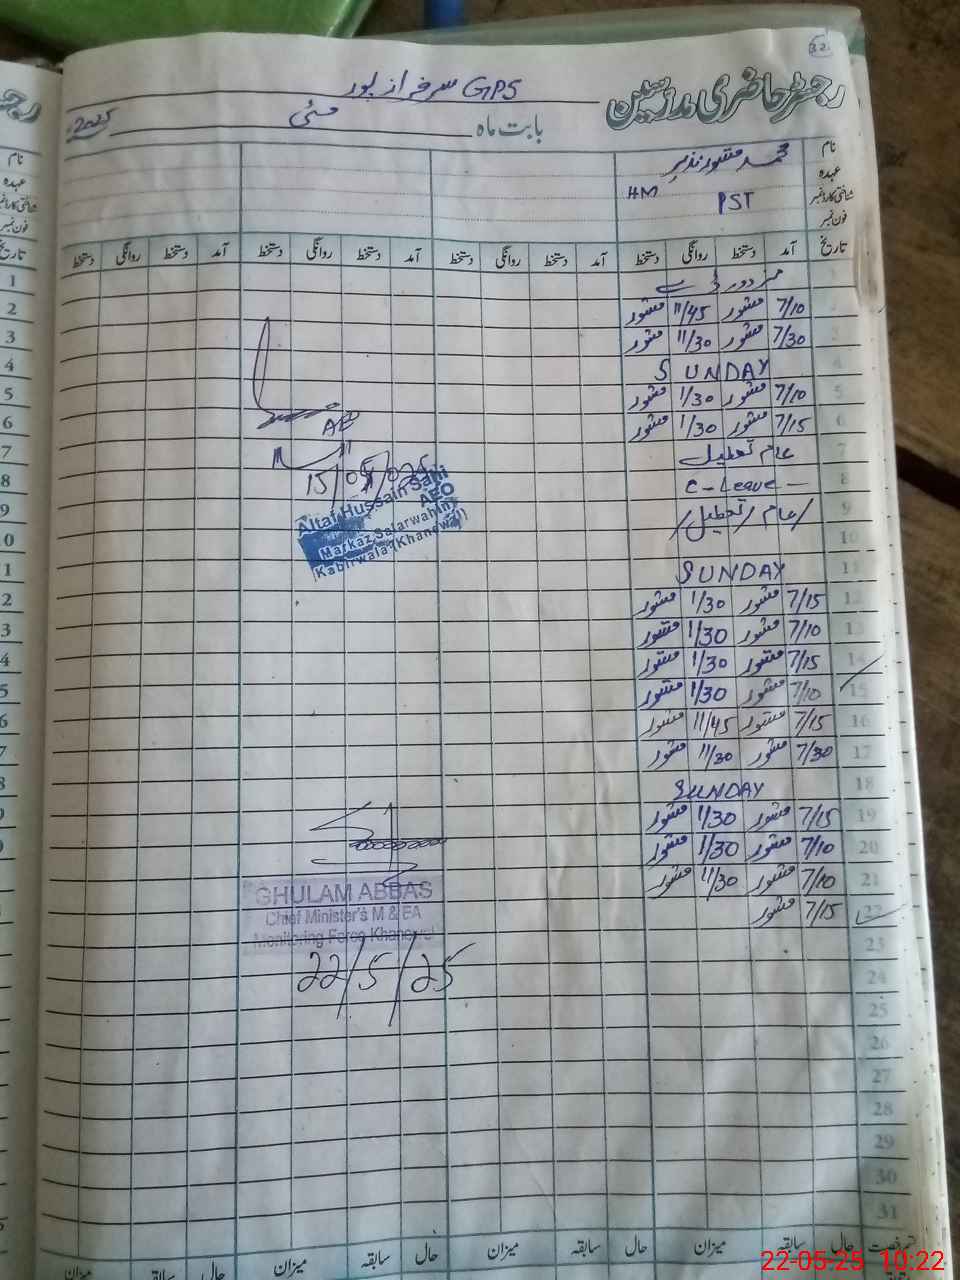 32
رجسٹر حاضری مدرسین
GPS سرفراز پور
بابت ماہ مئی 2025
نام محمد منشور نذیر
عہدہ HM PST
شناختی کارڈ نمبر
فون نمبر
تاریخ آمد دستخط روانگی دستخط آمد دستخط روانگی دستخط آمد دستخط روانگی دستخط
1
2 7/10 منشور 11/45 منشور
3 7/30 منشور 11/30 منشور
4 SUNDAY
5 7/10 منشور 1/30 منشور
6 7/15 منشور 1/30 منشور
7 عام تعطیل
8 C-Leave-
9 /عام/تعطیل/
10
11 SUNDAY
12 7/15 منشور 1/30 منشور
13 7/10 منشور 1/30 منشور
14 7/15 منشور 1/30 منشور
15 7/10 منشور 1/30 منشور
16 7/15 منشور 11/45 منشور
17 7/30 منشور 11/30 منشور
18 SUNDAY
19 7/15 منشور 1/30 منشور
20 7/10 منشور 1/30 منشور
21 7/10 منشور 11/30 منشور
22 7/15 منشور
23
24
25
26
27
28
29
30
31
AEO
15/05/025
Altaf Hussain Sahi
AEO
Markaz Salarwahin
Kabirwala (Khanewal)
GHULAM ABBAS
Chief Minister's M & EA
Monitoring Force Khanewal
22/5/25
رخصت سابقہ میزان حال سابقہ میزان حال سابقہ میزان حال
22-05-25 10:22